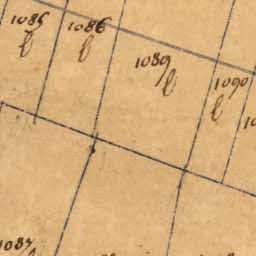 1085
b
1086
b
1089
b
1090
b
1087